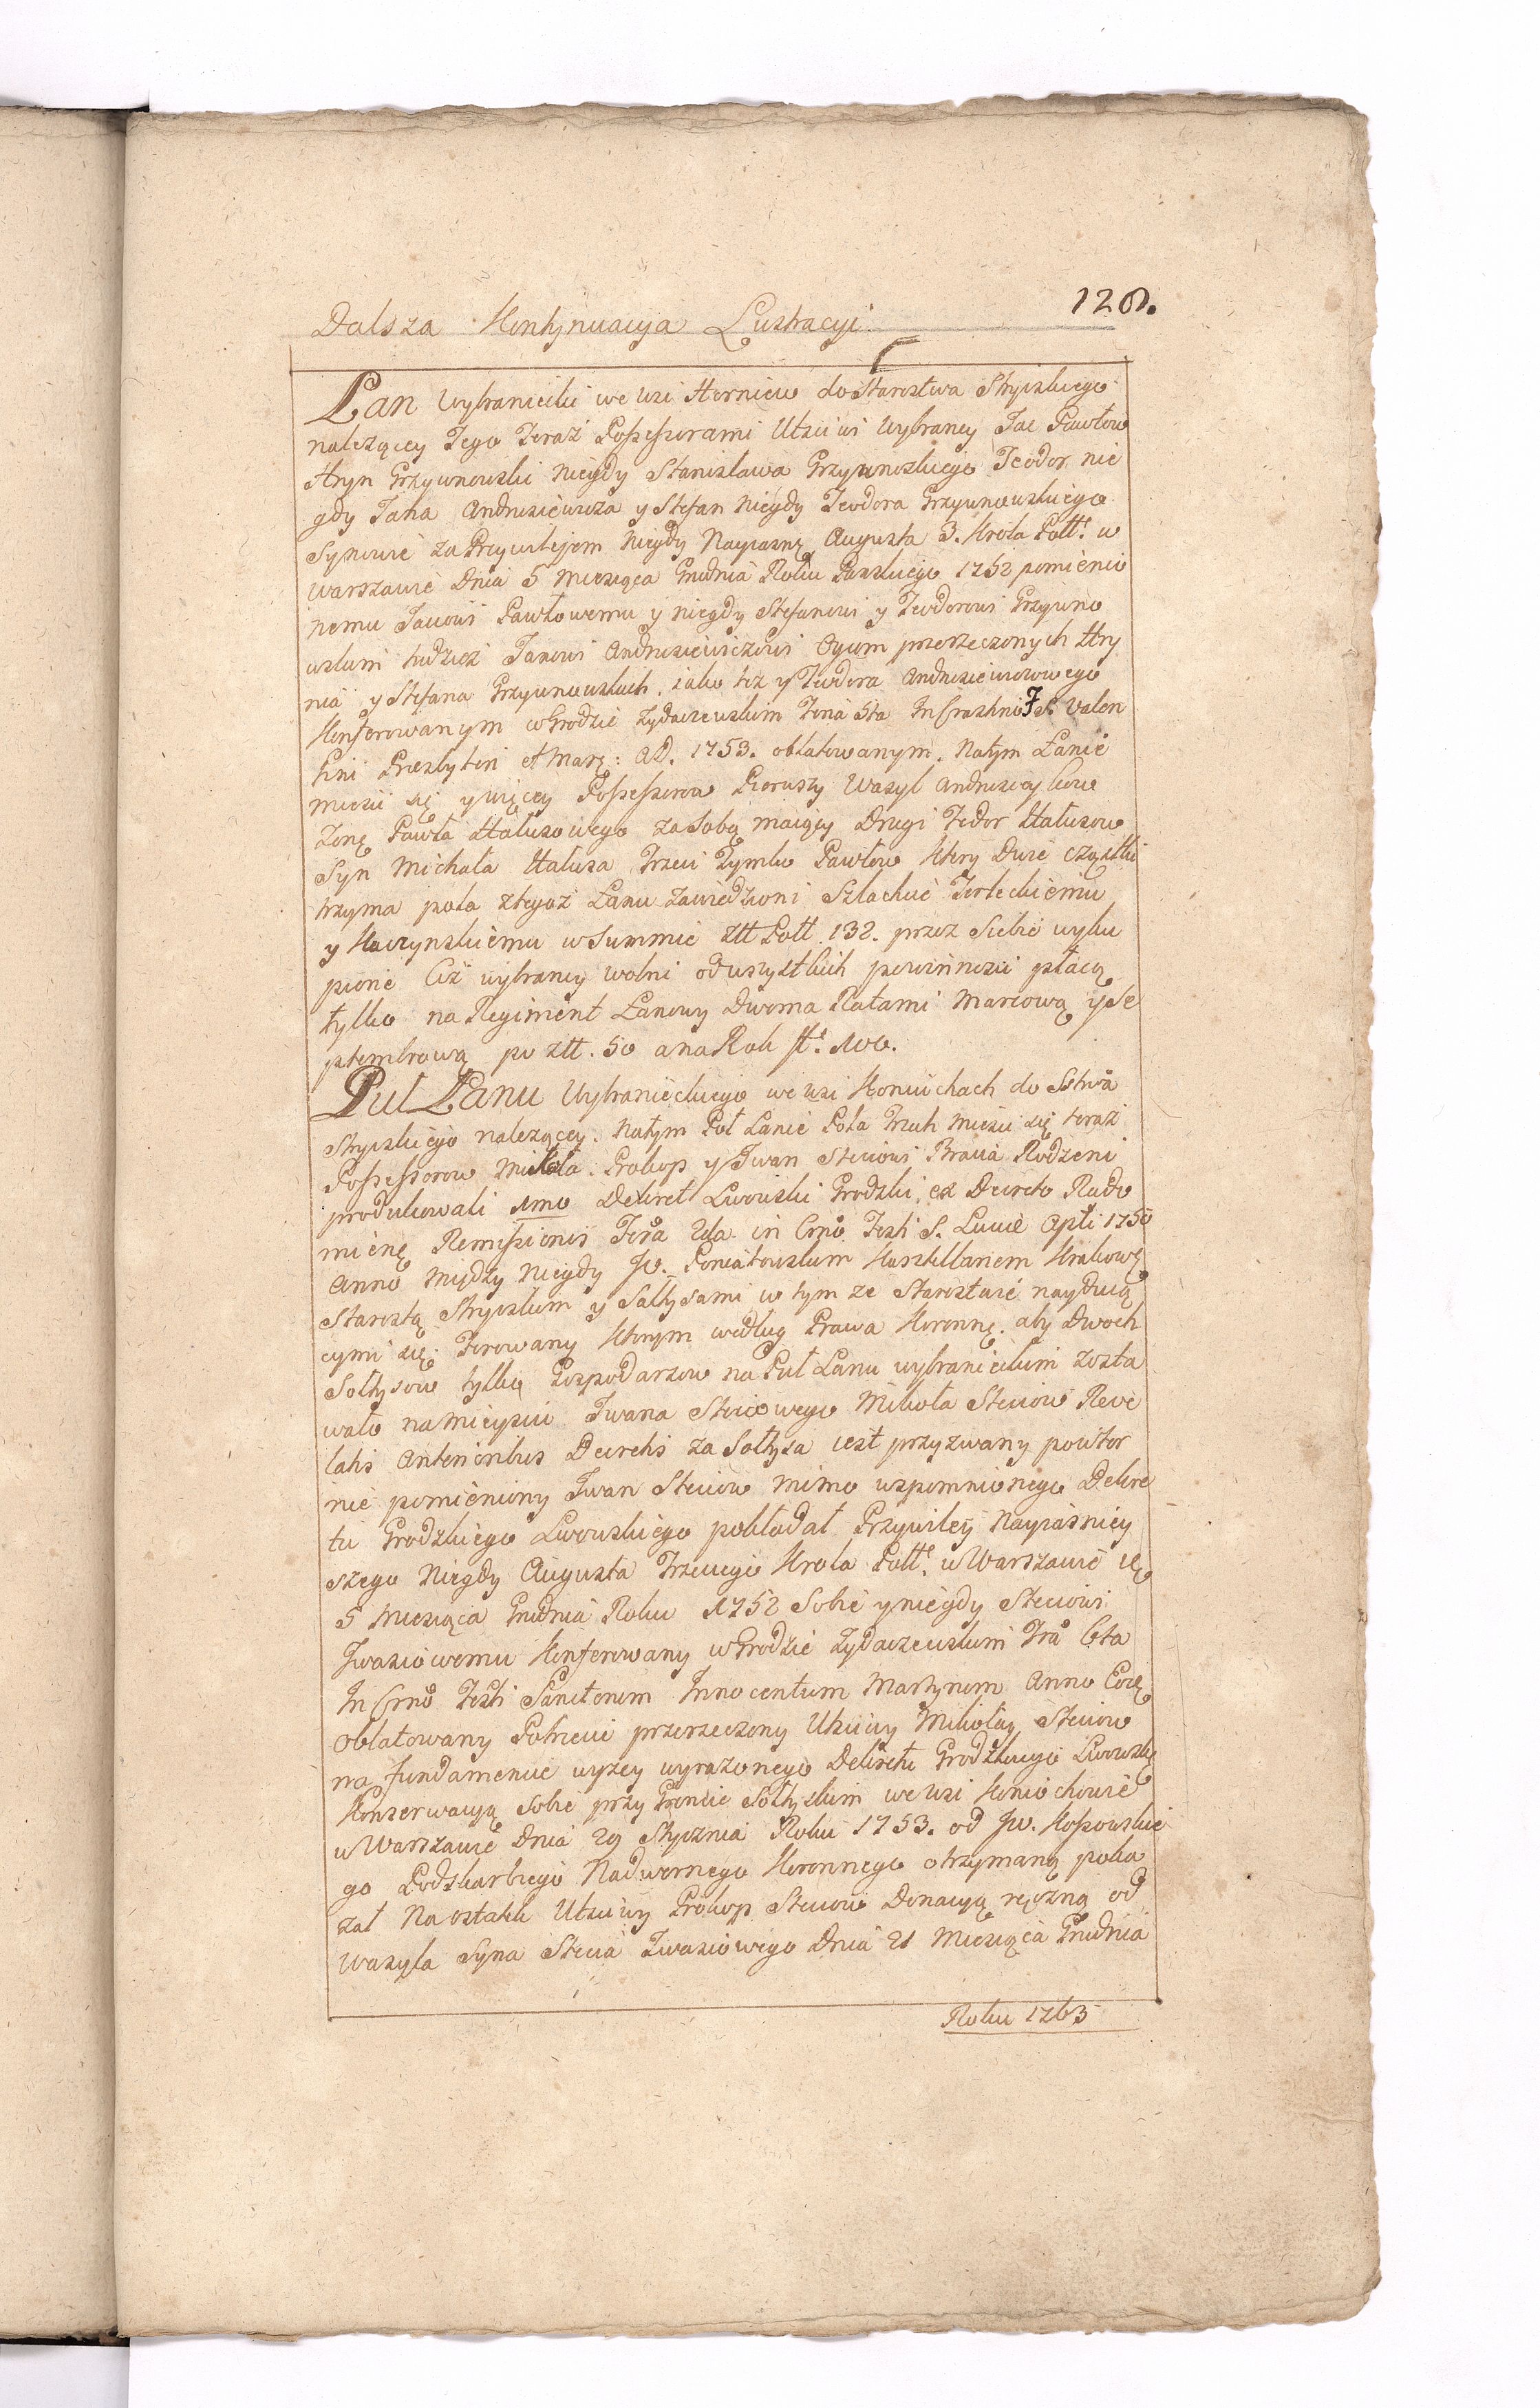 Dalsza Kontynuacya Lustracyi
120.
Łan Wybraniecki we wsi Horniew do Starostwa Stryiskiego
należący Tego Teraz Possessorami Utsciwi Wybrancy Jac Pawłow
Hryn Grzywnowski Niegdy Stanisława Grzywnoskiego Teodor nie
gdy Jana Andrusiewicza y Stefan Niegdy Teodora Grzywnowskiego
Synowie za Przywilejem Niegdy Nayiasnę Augusta 3. Krola Poll: w
Warszawie Dnia 5 Miesiąca Grudnia Roku Panskiego 1752 pomienio
nemu Jacowi Pawłowemu y niegdy Stefanowi y Teodorowi Grzywno
wskim tudziez Janowi Andrusiewiczowi Oycom przerzeczonych Hry
nia y Stefana Grzywnowskich, iako też y Teodora Andrusiewiczowego
Konferowanym w Grodzie Zydaczewskim Feria 5ta In Crastino F. S. Valen
tini Presbyteri et Marz: AD. 1753. oblatowanym. Natym Łanie
miesci się y więcey Possessorow Pierwszy Wasyl Andrusicy kow
Zonę Pawła Hałusowego za Sobą maiący Drugi Fedor Hałusow
Syn Michała Hałusa Trzeci Tymko Pawłow ktery Dwie cząstki
trzyma pola ztegoż Łanu zawiedzioni Szlachcie Terleckiemu
y Haczynskiemu w Summie Złł Poll 132. przez Siebie wyku
pione Ciż wybrancy wolni od wszystkich powinnosci płacą
tylko na Regiment Łanowy Dwoma Ratami Marcową y Se
ptembrową po złł. 50 a na Rok fl. 100.
Puł Łanu Wybranieckiego we wsi Koniuchach do Sstwa
Stryiskiego nalezący. Natym Poł Łanie Pola Trzech miesci się teraz
Possessorow Mikola Prokop y Iwan Steciowi Bracia Rodzeni
produkowali 1mo Dekret Lwowski Grodzki, ex Decreto Rado
mienę Remissionis Feria 2da in Crno Festi S. Lucae Apli 1750
Anno między Niegdy Jw. Poniatowskim Kasztellanem Krakows
Starostą Stryiskim y Sołtysami w tym ze Starostwie nayduią
cymi się Ferowany Ktorym według Prawa Koronnę. aby Dwoch
Sołtysow tylko Gospodarzow na Puł Łanu wybranieckim zosta
wało na mieyscu Iwana Steciowego Mikoła Steciow Reve
latis Anterioribus Decretis za Sołtysa iest przyzwany powtor
nie pomieniony Iwan Steciow mimo wspomnionego Dekre
tu Grodzkiego Lwowskiego pokładał Przywiley Nayiasniey
szego Niegdy Augusta Trzeciego Krola Poll: w Warszawie
5 Miesiąca Grudnia Roku 1752 Sobie y niegdy Steciowi
Iwasiowemu Konferowany w Grodzie Zydaczewskim Fra 6ta
In Crno Festi Sanctorum Innocentum Martyrum Anno Eoę
Oblatowany Potrzeci przerzeczony Utsciwy Mikołay Steciow
na fundamencie wyzey wyrazonego Dekretu Grodzkiego Lwowskę
Konserwacyą Sobie przy Groncie Sołtyskim we wsi Koniochowie
w Warszawie Dnia 29 Stycznia Roku 1753. od Jw. Kossowskie
go Podskarbiego Nadwornego Koronnego otrzymaną poka
zał Na ostatek Utsciwy Prokop Steciow Donacyą ręczną od
Wasyla Syna Stecia Iwasiowego Dnia 21 Miesiąca Grudnia
Roku 1763